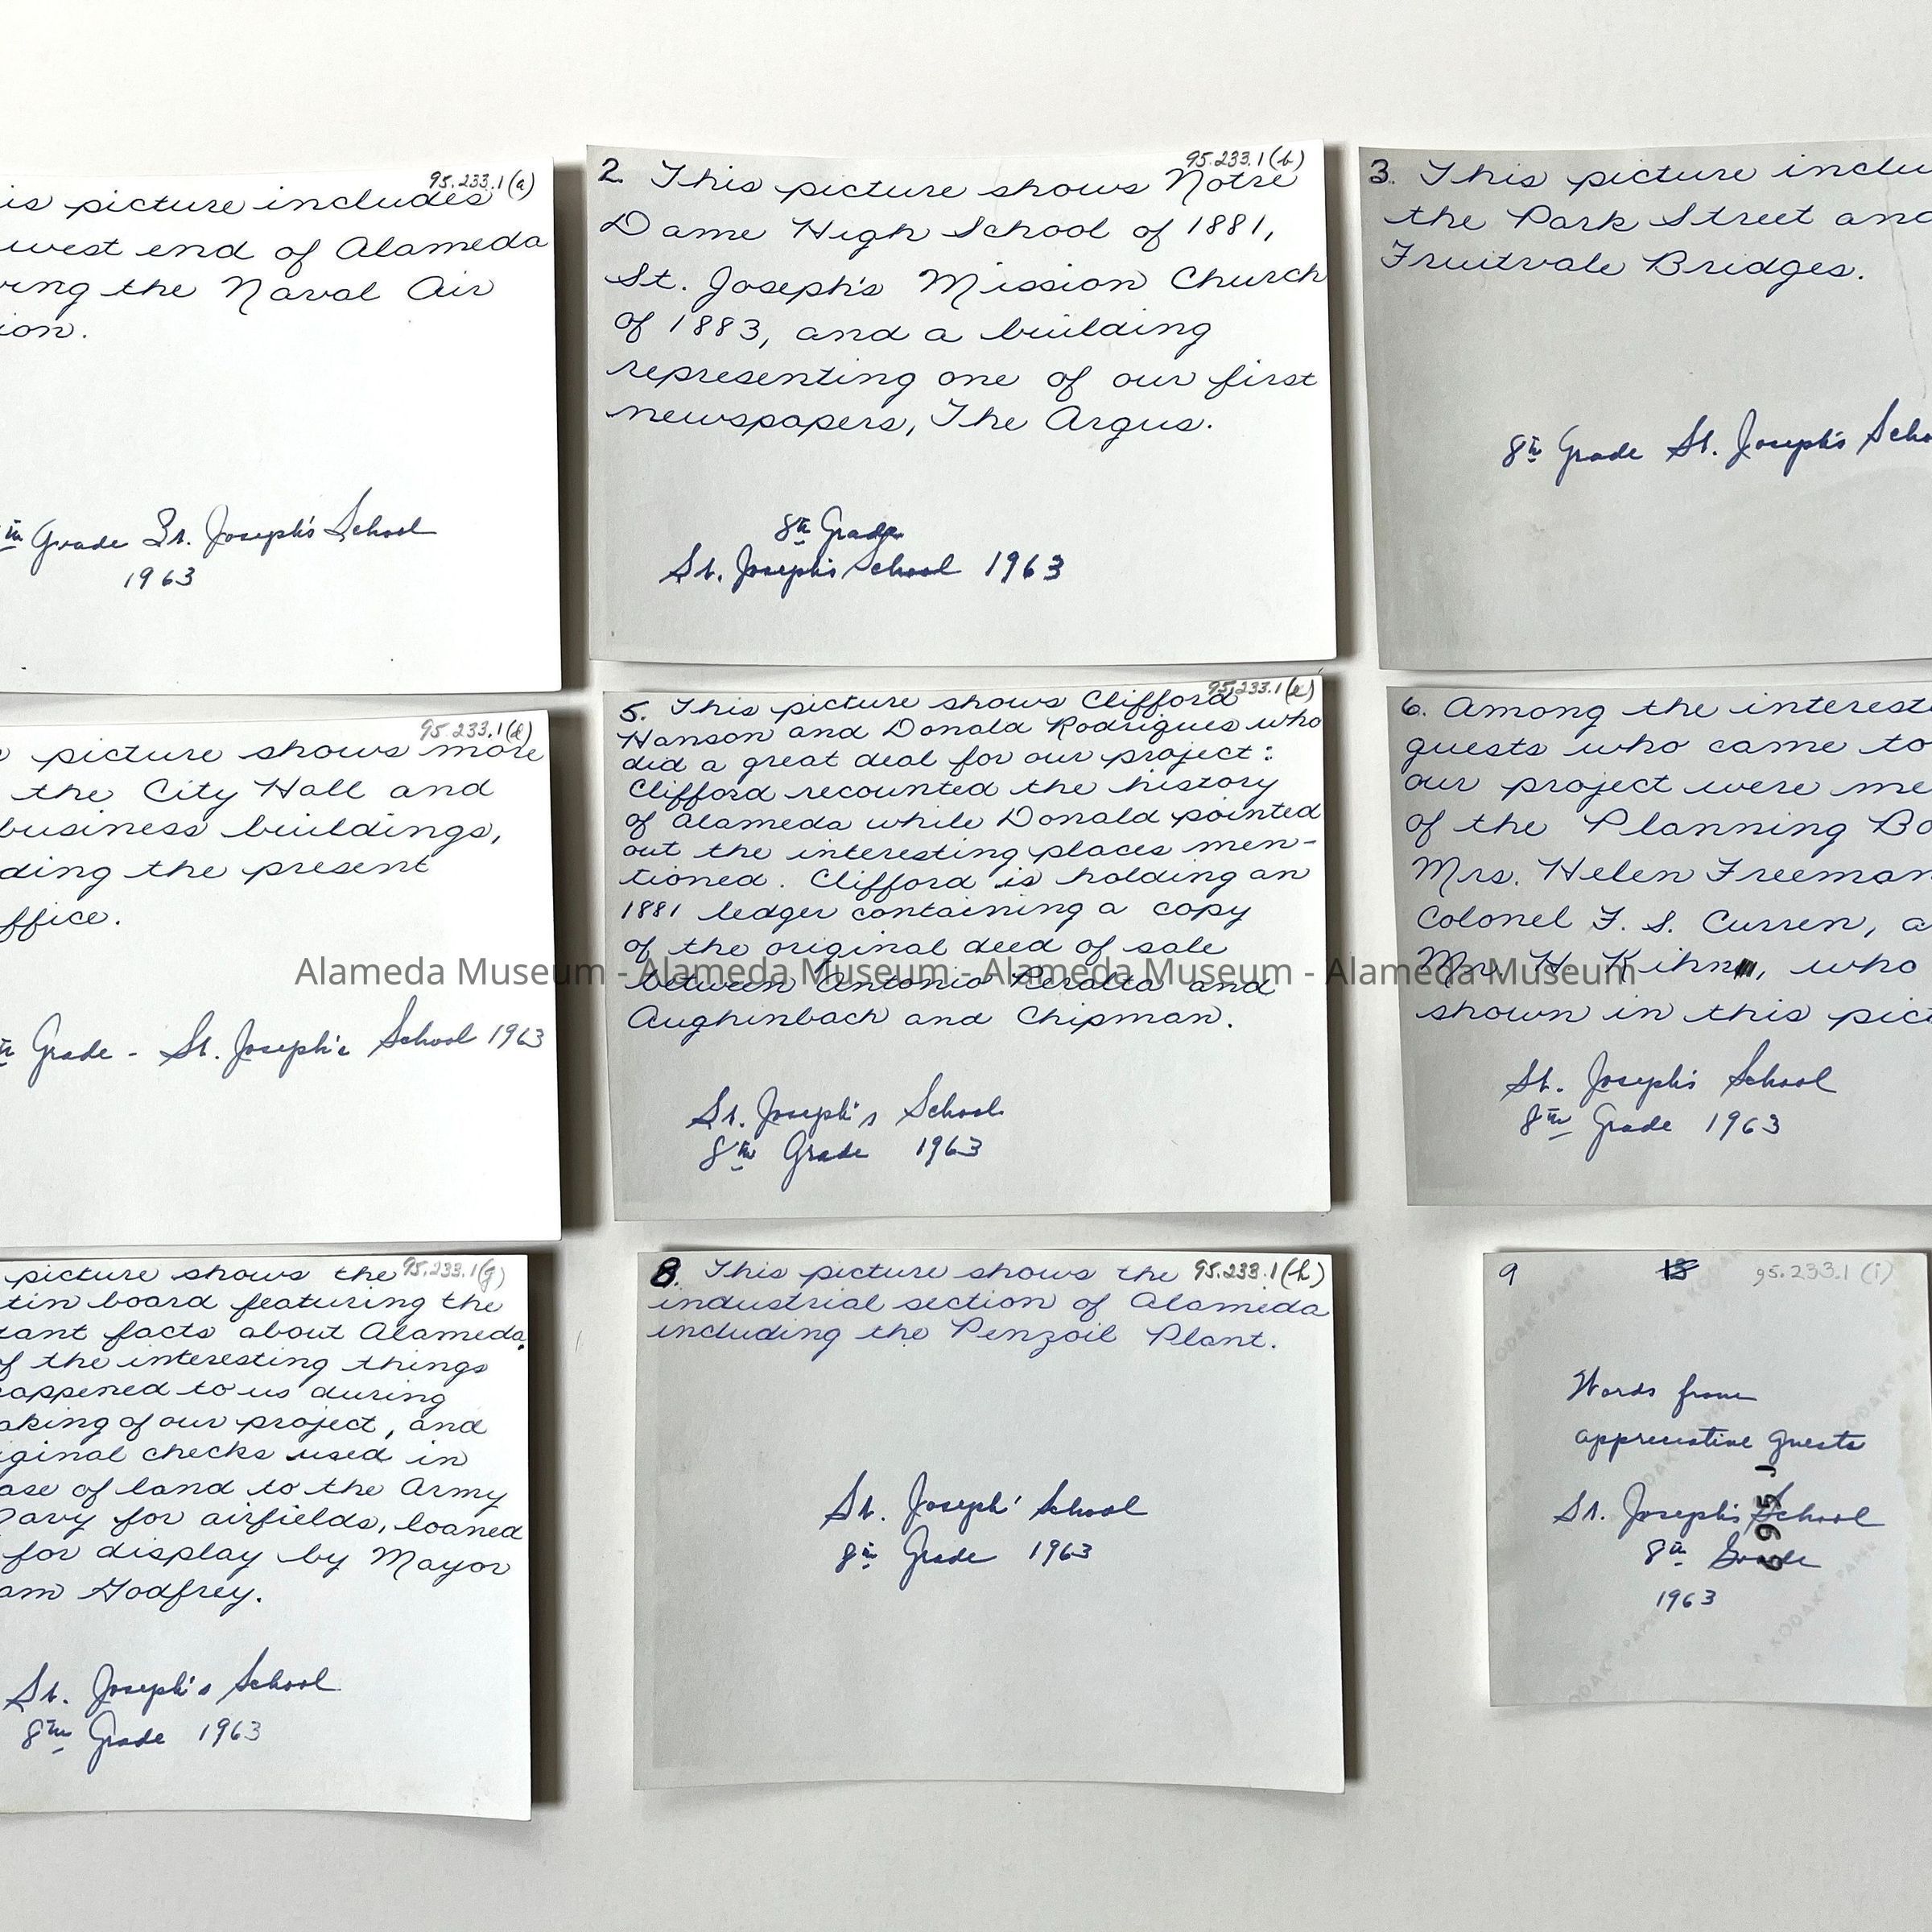 95.233.1(a)
is picture includes
west end of Alameda
ring the Naval Air
ion.
Grade St. Joseph's School
1963
95.233.1(b)
2. This picture shows Notre
Dame High School of 1881,
St. Joseph's Mission Church
of 1883, and a building
representing one of our first
newspapers, The Argus.
8th Grade
St. Joseph's School 1963
3. This picture inclu
the Park Street and
Fruitvale Bridges.
8th Grade St. Joseph's Scho
95.233.1(d)
picture shows more
the City Hall and
business buildings,
ding the present
ffice.
Grade - St. Joseph's School 1963
95.233.1(e)
5. This picture shows Clifford
Hanson and Donald Rodrigues who
did a great deal for our project:
Clifford recounted the history
of Alameda while Donald pointed
out the interesting places men-
tioned. Clifford is holding an
1881 ledger containing a copy
of the original deed of sale
between Antonio Peralta and
Aughinbach and Chipman.
St. Joseph's School
8th Grade 1963
6. Among the interest
guests who came to
our project were me
of the Planning Bo
Mrs. Helen Freeman
Colonel F. S. Curren, a
Mr. H. Kihn, who
shown in this pict
St. Joseph's School
8th Grade 1963
Alameda Museum - Alameda Museum - Alameda Museum - Alameda Museum
95.233.1(g)
picture shows the
tin board featuring the
tant facts about Alameda,
of the interesting things
happened to us during
aking of our project, and
iginal checks used in
ase of land to the Army
Navy for airfields, loaned
for display by Mayor
am Godfrey.
St. Joseph's School
8th Grade 1963
95.233.1(h)
8. This picture shows the
industrial section of Alameda
including the Penzoil Plant.
St. Joseph' School
8th Grade 1963
9 13 95.233.1(i)
Words from
appreciative guests
St. Joseph's School
8th Grade
1963
695 J
KODAK PAPER